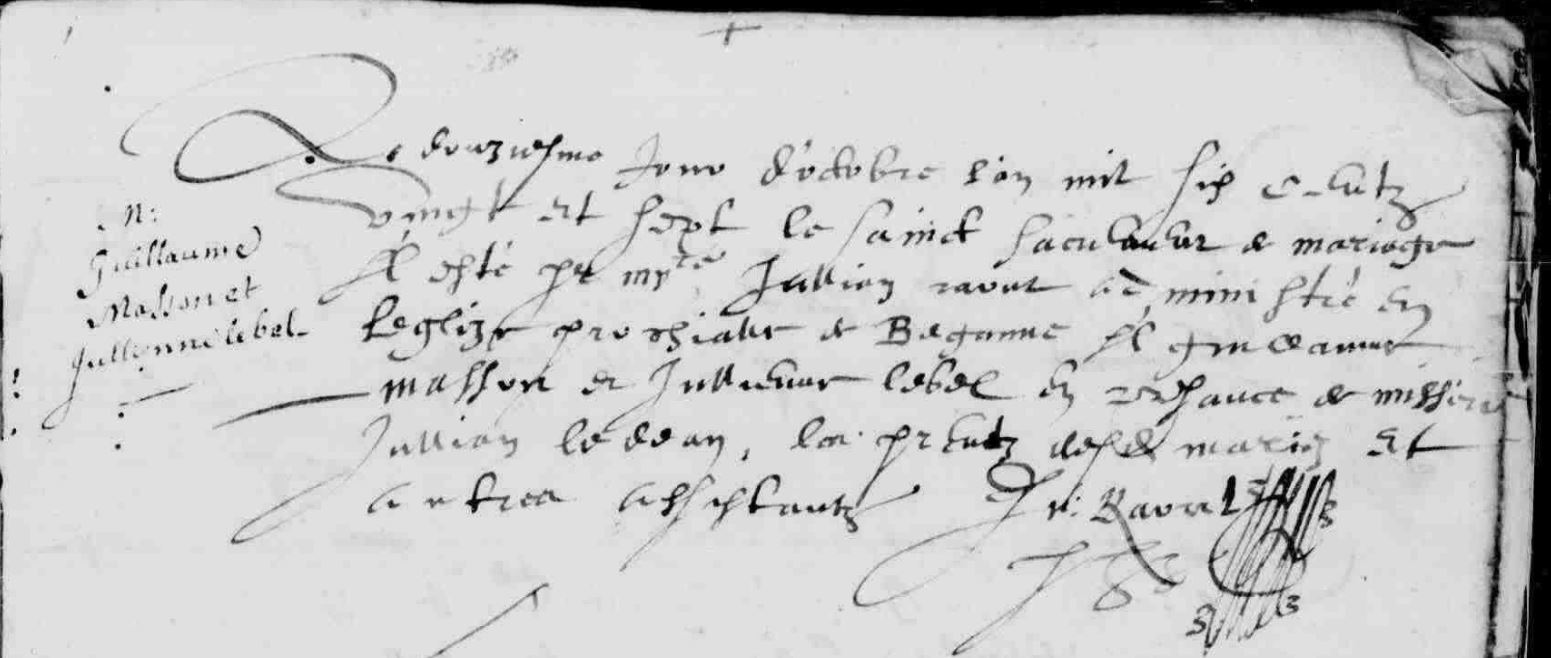 N:
Guillaume
Masson et
Jullyenne lebel
Le douziesme Jour d'octobre l'an mil six centz
vingt et sept le sainct sacrement de mariage
A esté par my Jullian raoul administré en
Leglize prochialle de Beganne A guillaume
masson et Jullienne lebel en presance de missire
Jullian le dean, les parentz desd mariez et
autres assistantz J R: Raoul